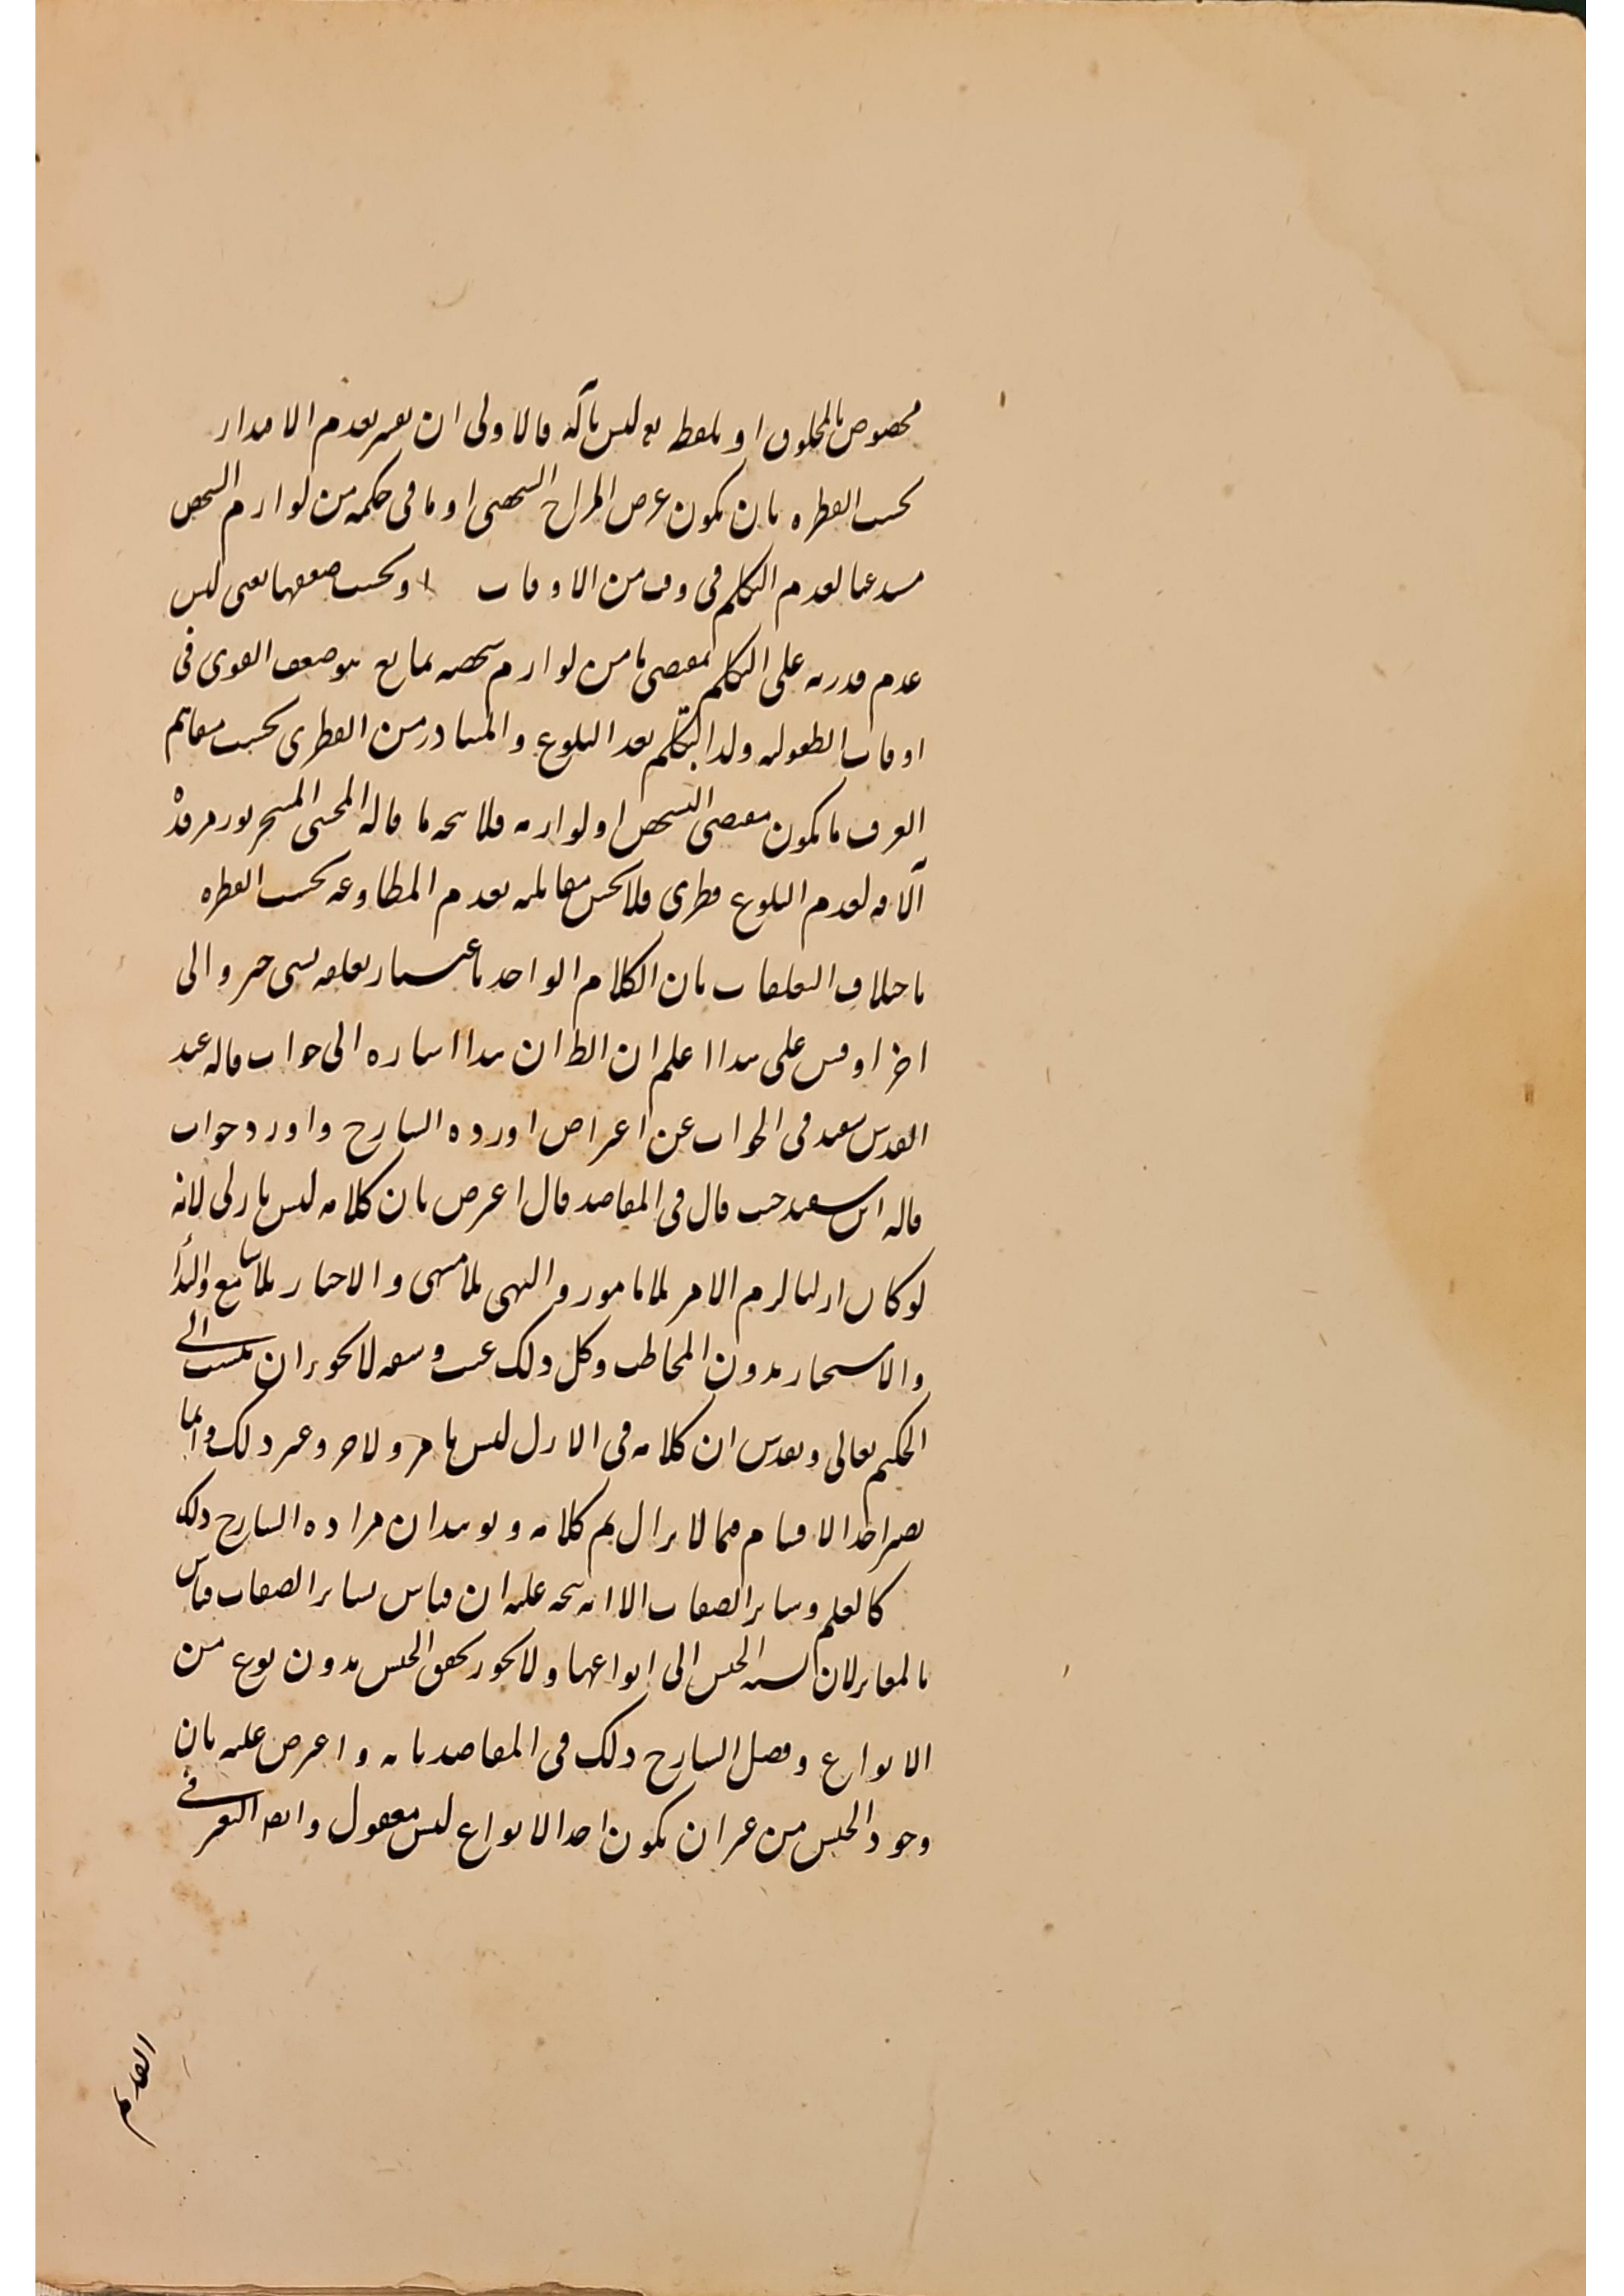 مخصوص بالمخلوق او بلفظه تع ليس بآلة فالاولى ان يفسر بعدم الاقتدار
بحسب الفطرة بان يكون عرض المزاج الشخصى او ما فى حكمه من لوازم الشخص
مستدعيا لعدم التكلم فى وقت من الاوقات او بحسب ضعفها يعنى ليس
عدم قدرته على التكلم بمقتضى ما من لوازم شخصه بمانع هو ضعف القوى فى
اوقات الطفولية ولذا يتكلم بعد البلوغ والمتبادر من الفطرى بحسب مفاهيم
العرف ما يكون مقتضى الشخص او لوازمه فلا يتجه ما قاله المحشى
الآفة لعدم البلوغ فطرى فلا يحسن مقابلته بعدم المطاوعة بحسب الفطرة
باختلاف التعلقات بان الكلام الواحد باعتبار تعلقه بشى خبر والى
اخر او قس على هذا اعلم ان الظ ان هذا اشارة الى جواب قاله عبد
القدس سعيد فى الجواب عن اعتراض اورده الشارح واورد جواب
قاله ابن سعيد حيث قال فى المقاصد قال اعترض بان كلامه ليس بازلى لانه
لو كان ازليا لزم الامر بلا مامور والنهى بلا منهى والاخبار بلا سامع والندا
والاستخبار بدون المخاطب وكل ذلك عبث وسفه لا يجوز ان ينسب الى
الحكيم تعالى وتقدس ان كلامه فى الازل ليس بامر ولا خبر وغير ذلك وانما
يصير احد الاقسام فيما لا يزال ثم كلامه ويؤيد ان مراده الشارح ذلك
كالعلم وساير الصفات الا انه يتجه عليه ان قياس بساير الصفات قياس
بالمغاير لان نسبة الجنس الى انواعها ولا يجوز تحقق الجنس بدون نوع من
الانواع وفصل الشارح ذلك فى المقاصد بانه واعترض عليه بان
وجود الجنس من غير ان يكون احد الانواع ليس معقول وايضا التغير فى
القديم